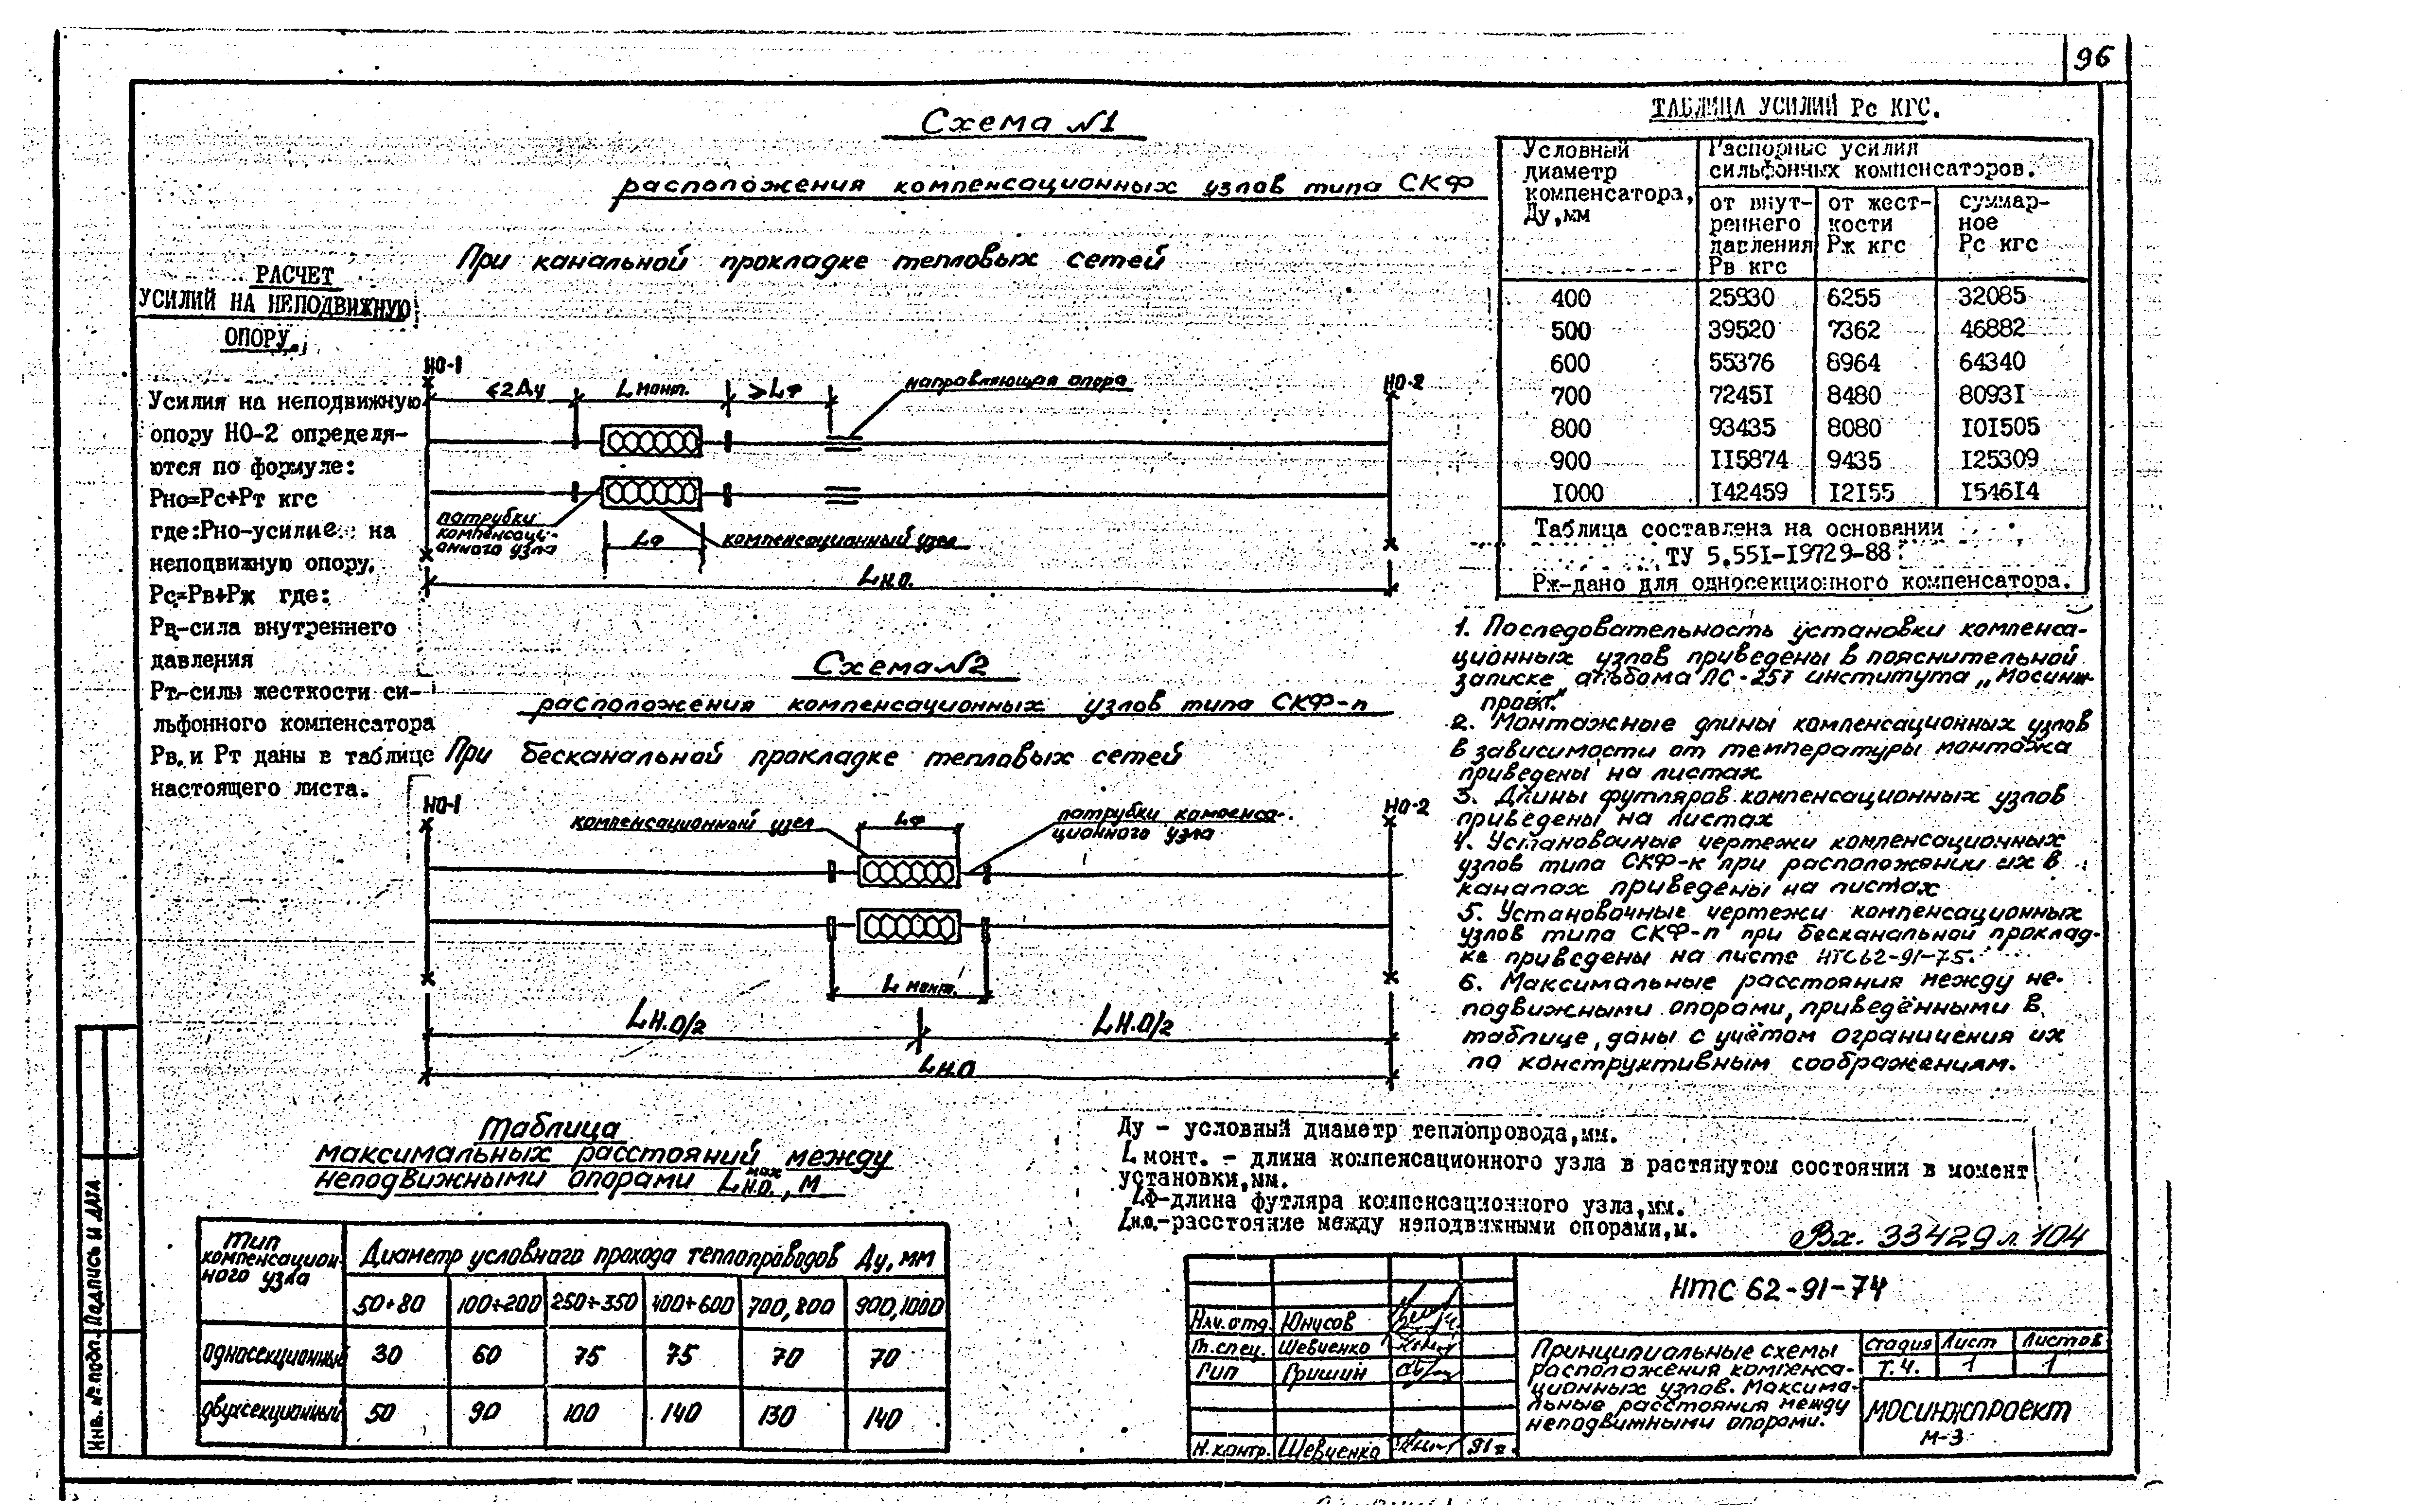 96
Схема №1
расположения компенсационных узлов типа СКФ
При канальной прокладке тепловых сетей
РАСЧЕТ
УСИЛИЙ НА НЕПОДВИЖНУЮ
ОПОРУ.
Усилия на неподвижную
опору НО-2 определя-
ются по формуле:
Рно=Рс+Рт кгс
где:Рно-усилие на
неподвижную опору.
Рс=Рв+Рж где:
Рв-сила внутреннего
давления
Рт-силы жесткости си-
льфонного компенсатора
Рв.и Рт даны в таблице
настоящего листа.
НО-1
<2Ду
L монт.
>Lф
направляющая опора
НО-2
патрубки
компенсаци-
онного узла
Lф
компенсационный узел
Lн.о.
Схема №2
расположения компенсационных узлов типа СКФ-п
При бесканальной прокладке тепловых сетей
НО-1
компенсационный узел
Lф
патрубки компенса-
ционного узла
НО-2
L монт.
Lн.о/2
Lн.о/2
Lн.о
ТАБЛИЦА УСИЛИЙ Рс КГС.
Условный
диаметр
компенсатора,
Ду,мм
Распорные усилия
сильфонных компенсаторов.
от внут-
реннего
давления
Рв кгс
от жест-
кости
Рж кгс
суммар-
ное
Рс кгс
400 25930 6255 32085
500 39520 7362 46882
600 55376 8964 64340
700 7245I 8480 8093I
800 93435 8080 I0I505
900 II5874 9435 I25309
I000 I42459 I2I55 I546I4
Таблица составлена на основании
ТУ 5.55I-I9729-88
Рж-дано для односекционного компенсатора.
1. Последовательность установки компенса-
ционных узлов приведены в пояснительной
записке альбома ПС-257 института „Мосинж-
проект"
2. Монтажные длины компенсационных узлов
в зависимости от температуры монтажа
приведены на листах
3. Длины футляров компенсационных узлов
приведены на листах
4. Установочные чертежи компенсационных
узлов типа СКФ-к при расположении их в
каналах приведены на листах
5. Установочные чертежи компенсационных
узлов типа СКФ-п при бесканальной проклад-
ке приведены на листе НТС62-91-75.
6. Максимальные расстояния между не-
подвижными опорами, приведёнными в
таблице, даны с учётом ограничения их
по конструктивным соображениям.
Таблица
максимальных расстояний между
неподвижными опорами L max н.о., м
Тип
компенсацион-
ного узла
Диаметр условного прохода теплопроводов Ду, мм
50÷80 100÷200 250÷350 400÷600 700,800 900,1000
односекционный 30 60 75 75 70 70
двухсекционный 50 90 100 140 130 140
Ду - условный диаметр теплопровода,мм.
L монт. - длина компенсационного узла в растянутом состоянии в момент
установки,мм.
Lф-длина футляра компенсационного узла,мм.
Lн.о.-расстояние между неподвижными опорами,м.
Вх. 33429 л. 104
НТС 62-91-74
Нач. отд. Юнусов
Гл. спец. Шевченко
Гип Гришин
Н. контр. Шевченко 91г.
Принципиальные схемы
расположения компенса-
ционных узлов. Максима-
льные расстояния между
неподвижными опорами.
стадия Лист Листов
Т.Ч. 1 1
МОСИНЖПРОЕКТ
М-3
Инв. № подл. Подпись и дата